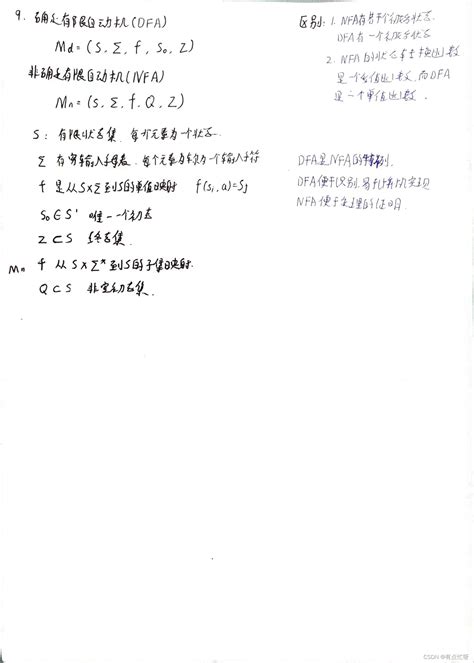 9. 确定有限自动机(DFA)
Md = (S, Σ, f, S₀, Z)
非确定有限自动机(NFA)
Mn = (S, Σ, f, Q, Z)
S: 有限状态集, 每个元素为一个状态
Σ 有穷输入字母表, 每个元素为一个输入字符
f 是从S×Σ到S的单值映射 f(Si, a)=Sj
S₀∈S 唯一一个初态
Z⊂S 终态集
Mn f 从S×Σ*到S的子集映射.
Q⊂S 非空初态集.
区别: 1. NFA有若干个初始状态
DFA有一个初始状态
2. NFA的状态转换函数
是一个多值函数, 而DFA
是一个单值函数.
DFA是NFA的特例.
DFA便于识别, 易于计算机实现
NFA便于定理的证明.
CSDN @有点忙呀